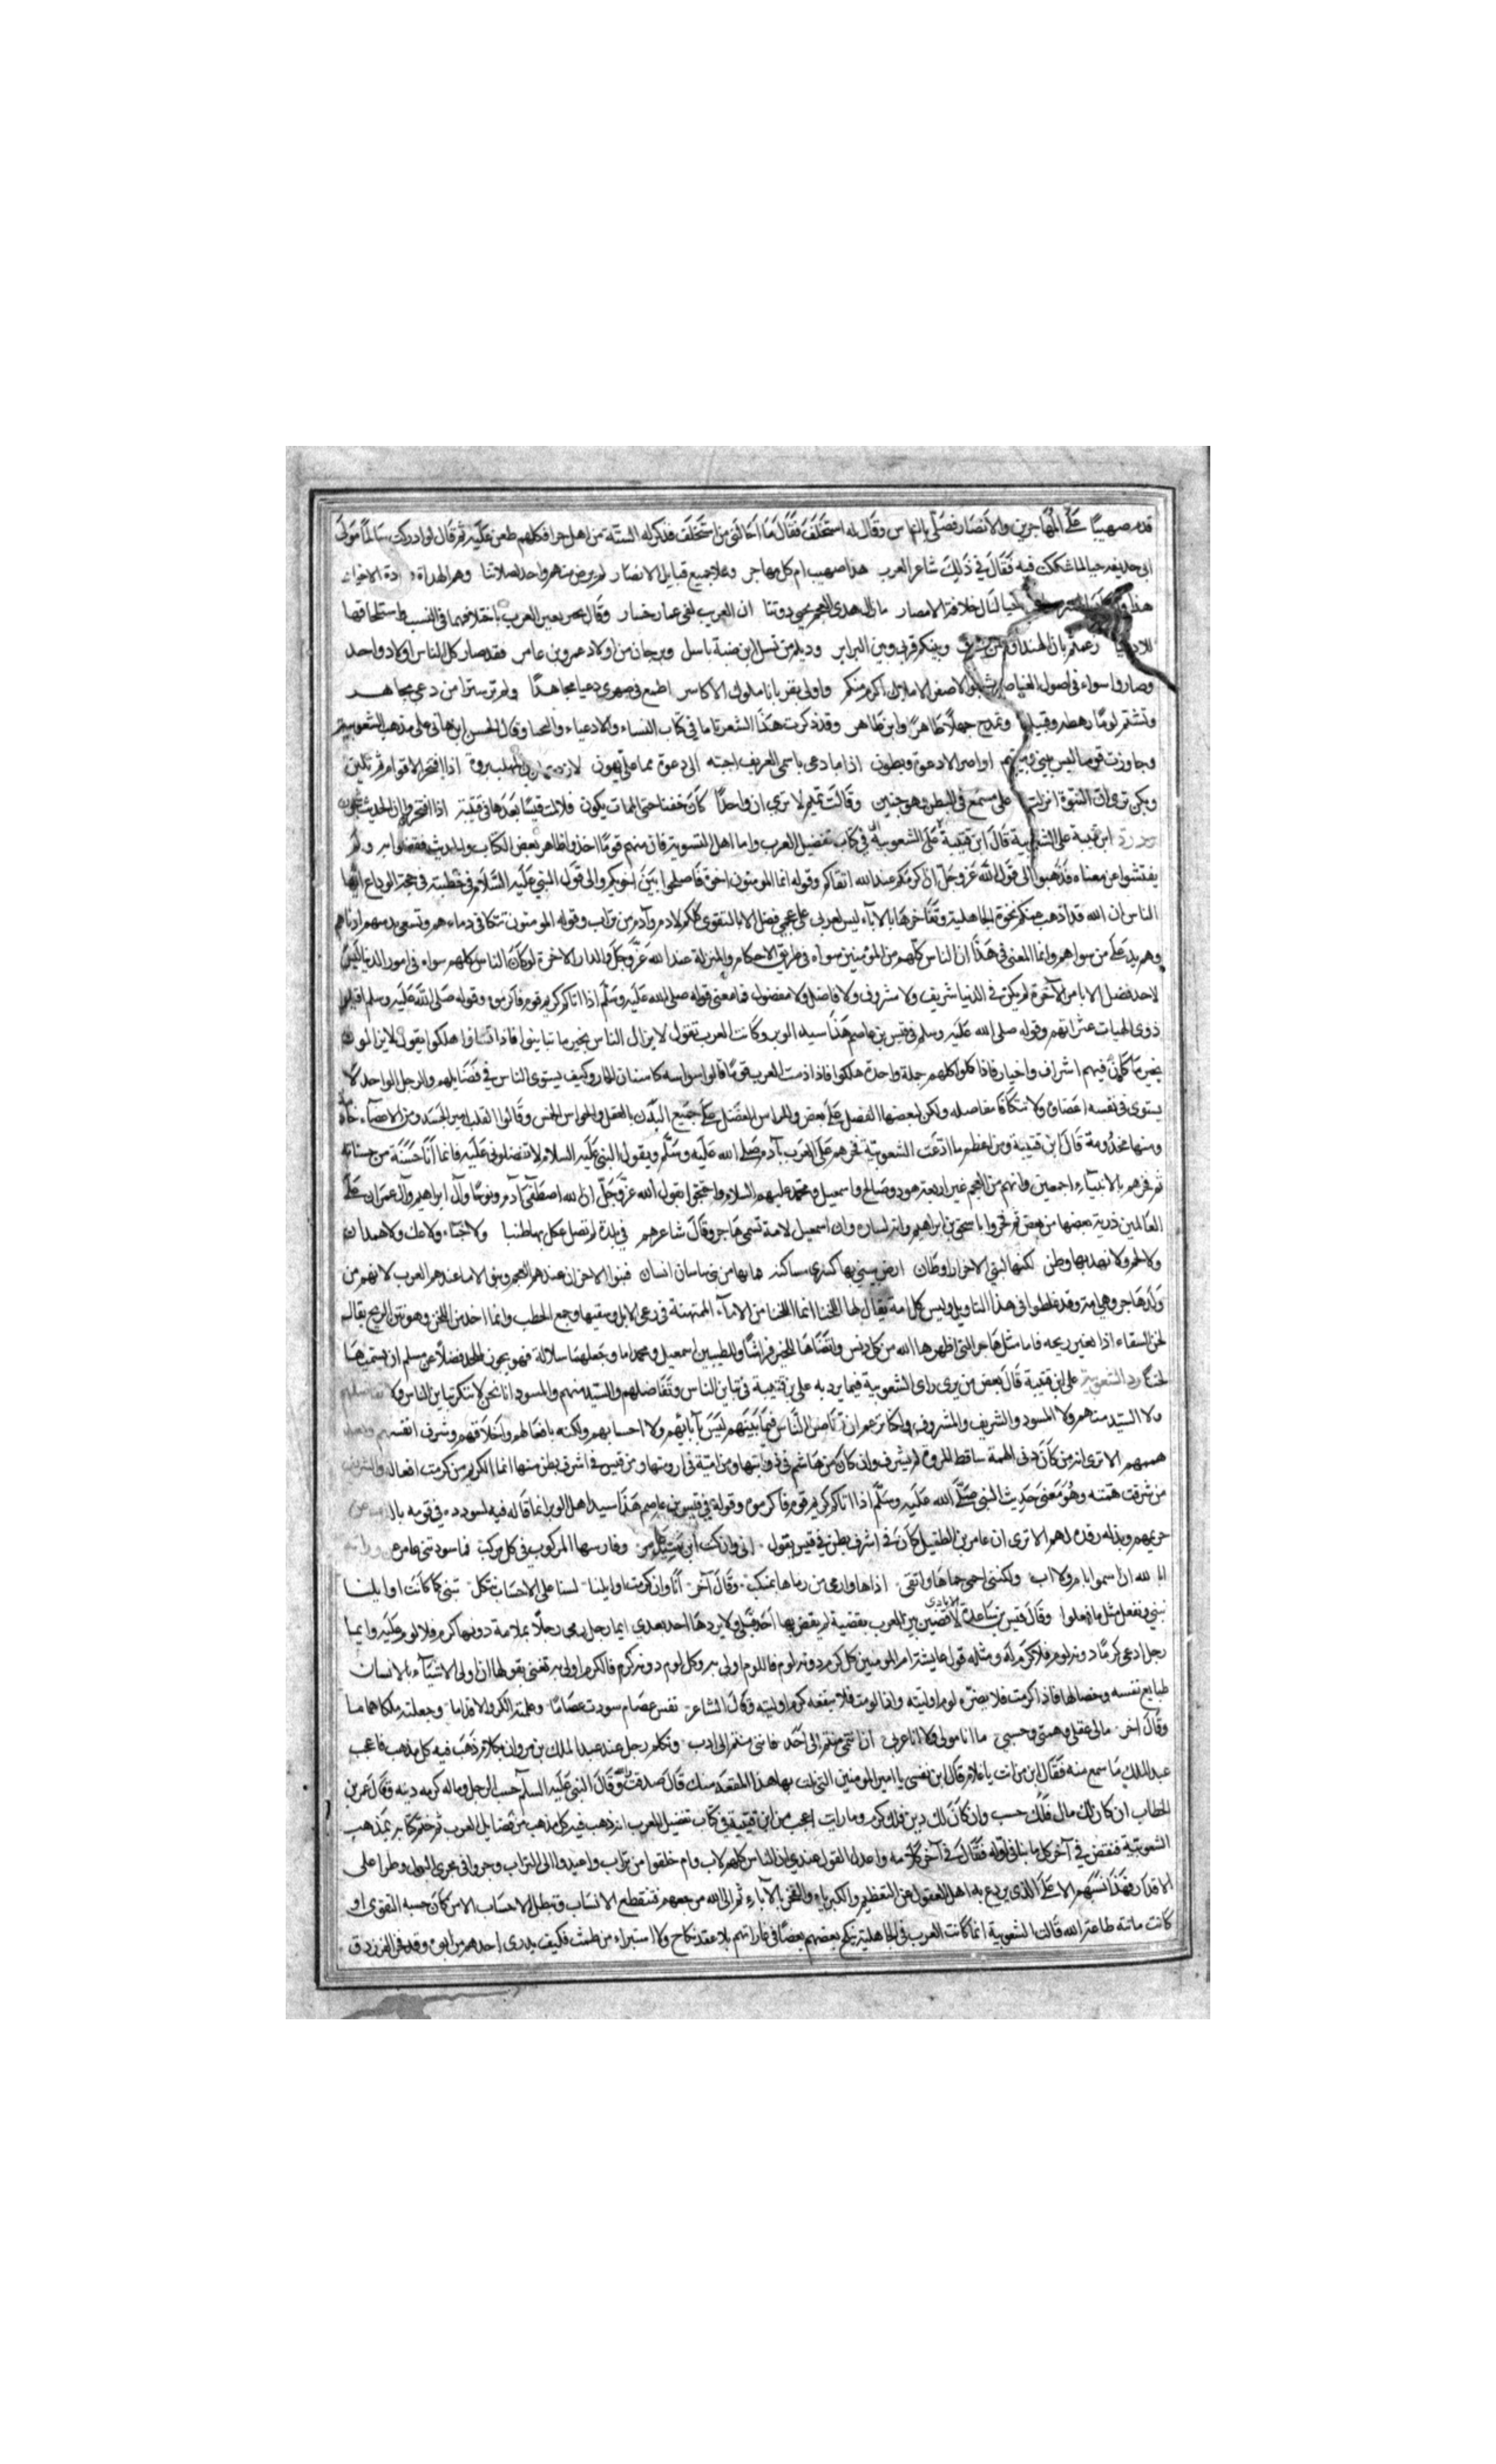 قدم صهيبًا على المهاجرين والانصار فصلى بالناس وقال له استخلف فقال ما اجد احق من استخلف فذكر له الستة من اهل حرا فكلهم طعن عليه ثم قال لو ادركت سالمًا مولى
ابى حذيفه حيا لما شككت فيه فقال في ذلك شاعر العرب هذا صهيب ام كل مهاجر وعلا جميع قبايل الانصار لم يرض منهم واحد لصلاتنا وهم الهداة وقادة الاخيار
هذا ولو حيا لنال خلافة الامصار ما بال هدى العجم يحيى دوننا ان العرب لفى عمار خسار وقال بحير يعير العرب باختلافها فى النسب واستلحاقها
للادعيا زعمتم بان الهند اولاد خندف وبينكم قربى وبين البرابر وديلم من نسل ابن ضبة باسل وبرجان من اولاد عمرو بن عامر فقد صار كل الناس اولاد واحد
وصاروا سواء فى اصول العناصر بنو الاصفر الاملاك اكرم منكم واولى بقربانا ملوك الاكاسر اطمع فى صهرى دعيا مجاهدًا ولم تر سترا من دعى مجاهر
وتشتم لومًا رهطه وقبيله وتمدح جهلًا طاهرًا وابن طاهر وقد ذكرت هذا الشعر تاما فى كتاب النساء والادعياء والنجبا وقال الحسن ابن هانى على مذهب الشعوبية
وجاورت قوما ليس بينى وبينهم اواصر الا دعوة وبطون اذا ما دعى باسمى العريف اجبته الى دعوة مما على يهون لازد عمان بن المهلب نزوة اذا افتخر الاقوام ثم تلين
وبكر ترى ان النبوة انزلت على مسمع فى البطن وهو جنين وقالت تميم لا نرى ان واحدًا كاحنفنا حتى الممات يكون فلا لمت قيسًا بعدها فى قتيبة اذا افتخروا ان الحديث شجون
رد ابن قتيبة على الشعوبية قال ابن قتيبة على الشعوبية في كتاب تفضيل العرب واما اهل التسوية فان منهم قومًا اخذوا ظاهر بعض الكتاب والحديث فقضوا به ولم
يفتشوا عن معناه فذهبوا الى قول الله عز وجل ان اكرمكم عند الله اتقاكم وقوله انما المومنون اخوة فاصلحوا بين اخويكم والى قول النبي عليه السلام فى خطبته فى حجة الوداع ايها
الناس ان الله قد اذهب عنكم نخوة الجاهلية وتفاخرها بالاباء ليس لعربى على عجمى فضل الا بالتقوى كلكم لادم وآدم من تراب وقوله المومنون تتكافى دماءهم وتسعى بذمتهم ادناهم
وهم يد على من سواهم وانما المعنى فى هذا ان الناس كلهم من المؤمنين سواء فى طريق الاحكام والمنزلة عند الله عز وجل والدار الاخرة لو كان الناس كلهم سواء فى امور الدنيا ليس
لاحد فضل الا بامر الاخرة لم يكن فى الدنيا شريف ولا مشروف ولا فاضل ولا مفضول فما معنى قوله صلى الله عليه وسلم اذا اتاكم كريم قوم فاكرموه وقوله صلى الله عليه وسلم اقيلوا
ذوى الهيات عثراتهم وقوله صلى الله عليه وسلم فى قيس بن عاصم هذا سيد الوبر وكانت العرب تقول لا يزال الناس بخير ما تباينوا فاذا تساووا هلكوا يقول لا يزالون
بخير ما كان فيهم اشراف واخيار فاذا كانوا كلهم جملة واحدة هلكوا فاذا ذمت العرب قومًا قالوا سواسه كاسنان الحمار وكيف يستوى الناس فى فضايلهم والرجل الواحد لا
يستوى فى نفسه اعضاوه ولا تتكافا مفاصله ولكن لبعضها الفضل على بعض وللراس الفضل على جميع البدن بالعقل والحواس الخمس وقالوا القلب امير الجسد ومن الاعضاء خادمة
ومنها مخدومة قال ابن قتيبة ومن اعظم ما ادعت الشعوبية فخرهم على العرب بآدم صلى الله عليه وسلم وبقول النبى عليه السلام لا تفضلونى عليه فانما انا حسنة من حسناته
ثم فخرهم بالانبياء اجمعين وانهم من العجم غير اربعة هود وصالح واسمعيل ومحمد عليهم السلام واحتجوا بقول الله عز وجل ان الله اصطفى آدم ونوحًا وآل ابراهيم وآل عمران على
العالمين ذرية بعضها من بعض ثم فخروا باسحق بن ابراهيم وانه لساره وان اسمعيل لامة تسمى هاجر وقال شاعرهم فى بلدة لم تصل عكل بها طنبا ولا خباء ولا عك ولا همدان
ولا لجرم ولا نهد بها وطن لكنها لبنى الاحرار اوطان ارض يبنى بها كسرى مساكنه فما بها من بنى ساسان انسان فبنوا الاحرار عندهم العجم وبنو الاما عندهم العرب لانهم من
ولد هاجر وهى امة وقد غلطوا فى هذا التاويل وليس كل امة يقال لها اللخنا انما اللخنا من الاماء الممتهنة فى رعى الابل وسقيها وجمع الحطب وانما اخذ من اللخن وهو نتن الريح يقال
لخن السقاء اذا تغير ريحه فاما مثل هاجر التى طهرها الله من كل دنس وارتضاها للخليل فراشًا وللطيبين اسمعيل ومحمد اما وجعلهما سلالة فهو يجوز لملحد فضلًا عن مسلم ان يسميها
لخنا رد الشعوبية على ابن قتيبة قال بعض من يرى راى الشعوبية فيما يرد به على بن قتيبة فى تباين الناس وتفاضلهم والسيد منهم والمسود انا نحن لا ننكر تباين الناس ولا تفاضلهم
ولا السيد منهم ولا المسود والشريف والمشروف ولكنا نزعم ان تفاضل الناس فيما بينهم ليس بآبائهم ولا احسابهم ولكنه بافعالهم واخلاقهم وشرف انفسهم وبعد
هممهم الا ترى انه من كان دنى الهمة ساقط المروة لم يشرف وان كان من هاشم فى ذوابتها ومن امية فى ارومتها ومن قيس فى اشرف بطن منها انما الكريم من كرمت افعاله والشريف
من شرفت همته وهو معنى حديث النبى صلى الله عليه وسلم اذا اتاكم كريم قوم فاكرموه وقوله فى قيس بن عاصم هذا سيد اهل الوبر انما قاله فيه لسودده فى قومه بالذب عن
حريمهم وبذله رفده لهم الا ترى ان عامر بن الطفيل كان فى اشرف بطن فى قيس يقول انى وان كنت ابن سيد عامر وفارسها المركوب فى كل مركب فما سودتنى عامر عن وراثة
ابا الله ان اسموا بام ولا اب ولكننى احمى حماها واتقى اذاها وارمى من رماها بمنكب وقال آخر انا وان كرمت اوايلنا لسنا على الاحساب نتكل نبنى كما كانت اوايلنا
تبنى ونفعل مثل ما فعلوا وقال قيس بن ساعدة الايادى لاقضين بين العرب بقضية لم يقض بها احد قبلى ولا يردها احد بعدى ايما رجل رمى رجلًا بملامة دونها كرم فلا لوم عليه وايما
رجل ادعى كرمًا دونه لوم فلا كرم له ومثله قول عايشة ام المومنين كل كرم دونه لوم فاللوم اولى به وكل لوم دونه كرم فالكرم اولى به تعنى بقولها ان اولى الاشياء بالانسان
طبايع نفسه وخصالها فاذا كرمت فلا يضره لوم اوليته واذا لومت فلا ينفعه كرم اوليته وقال الشاعر نفس عصام سودت عصامًا وعلمته الكر والاقداما وجعلته ملكا هماما
وقال اخر مالى عقلى وهمتى وحسبى ما انا مولى ولا انا عربى ان انتمى منتم الى احد فاننى منتم الى ادب وتكلم رجل عند عبد الملك بن مروان بكلام ذهب فيه كل مذهب فاعجب
عبد الملك ما سمع منه فقال ابن من انت يا غلام قال ابن نفسى يا امير المومنين التى نلت بها هذا المقعد منك قال صدقت وقال النبى عليه السلم حسب الرجل ماله وكرمه دينه وقال عمر بن
الخطاب ان كان لك مال فلك حسب وان كان لك دين فلك كرم وما رايت اعجب من ابن قتيبة فى كتاب تفضيل العرب انه ذهب فيه كل مذهب من فضايل العرب ثم ختم كتابه بمذهب
الشعوبية فنقض فى آخر كل ما بنا فى اوله فقال فى آخر كلامه واعدل القول عندى ان الناس كلهم لاب وام خلقوا من تراب واعيدوا الى التراب وجروا فى مجرى البول وطروا على
الاقذار فهذا نسبهم الاعلى الذى يردع به اهل العقول عن التعظيم والكبرياء والفخر بالآباء ثم الى الله مرجعهم فتنقطع الانساب وتبطل الاحساب الا من كان حسبه التقوى او
كانت ماتته طاعة الله قالت الشعوبية انما كانت العرب فى الجاهلية ينكح بعضهم بعضًا فى غاراتهم بلا عقد نكاح ولا استبراء من طمث فكيف يدرى احدهم من ابوه وقد فخر الفرزدق